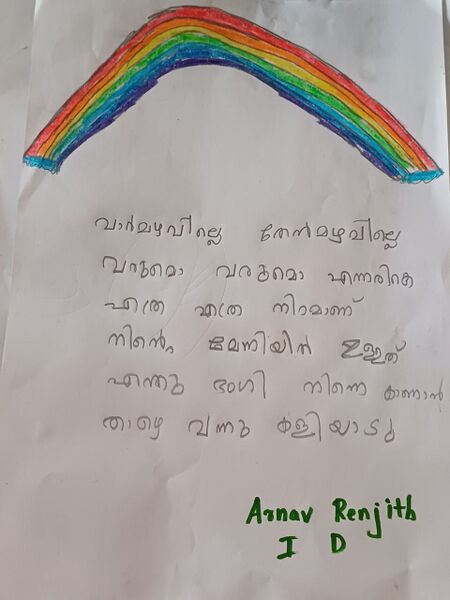 വാർമഴവില്ലെ തേൻമഴവില്ലെ
വരുമൊ വരുമൊ എന്നരികെ
എത്ര എത്ര നിറമാണ്
നിൻ്റെ മേനിയിൽ ഉള്ളത്
എന്തു ഭംഗി നിന്നെ കാണാൻ
താഴെ വന്നു കളിയാടു
Arnav Renjith
I D